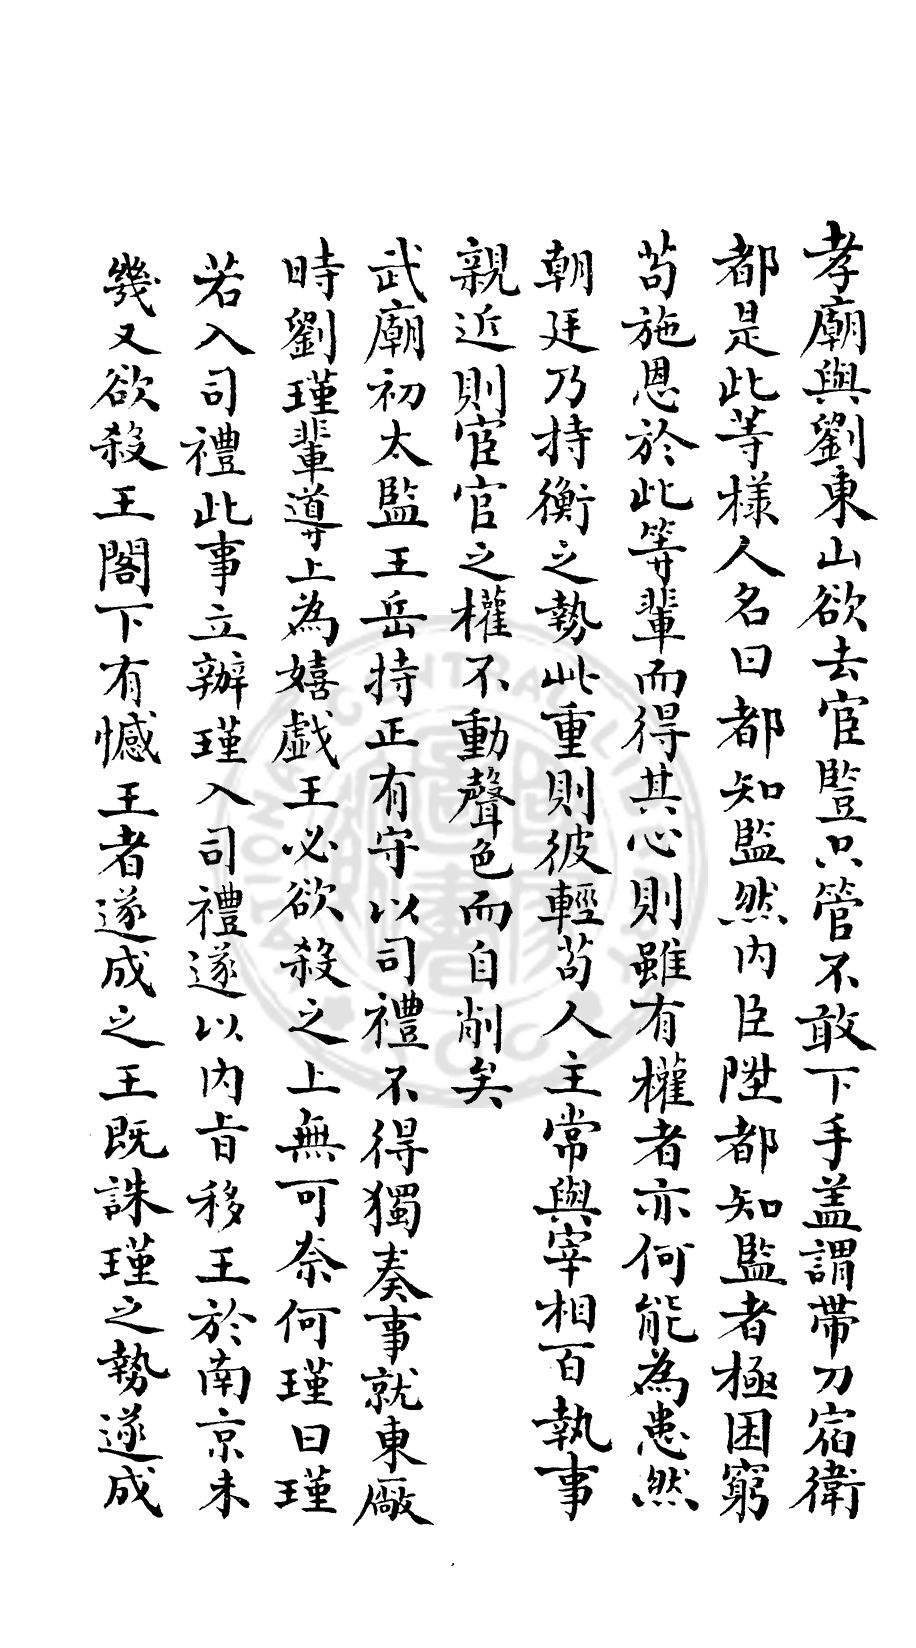 孝廟與劉東山欲去宦豎只管不敢下手盖謂帶刀宿衛
都是此等樣人名曰都知監然内臣陞都知監者極困窮
苟施恩於此等輩而得其心則雖有權者亦何能為患然
朝廷乃持衡之勢此重則彼輕苟人主常與宰相百執事
親近則宦官之權不動聲色而自削矣
武廟初太監王岳持正有守以司禮不得獨奏事就東廠
時劉瑾輩導上為嬉戲王必欲殺之上無可奈何瑾曰瑾
若入司禮此事立辦瑾入司禮遂以内旨移王於南京未
幾又欲殺王閣下有憾王者遂成之王既誅瑾之勢遂成
NATIONAL CENTRAL LIBRARY